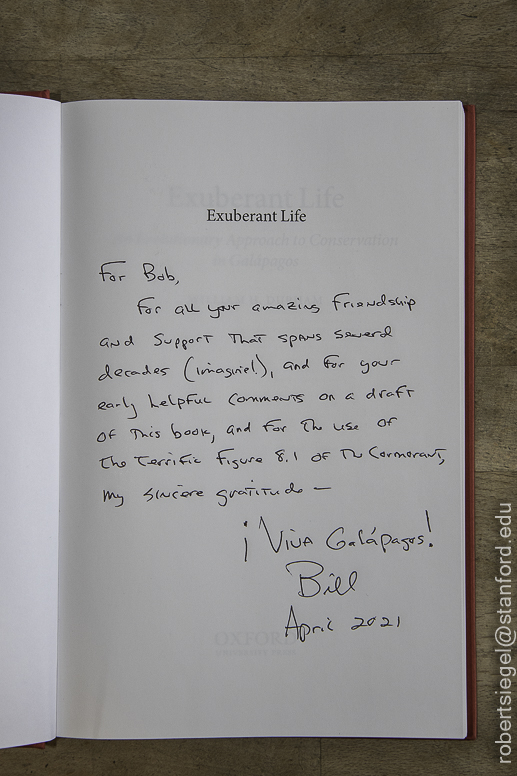 Exuberant Life
Exuberant Life
Approach to Conservation
in Galápagos
For Bob,
For all your amazing friendship
and support that spans several
decades (imagine!), and for your
early helpful comments on a draft
of this book, and for the use of
the terrific Figure 8.1 of the Cormorant,
my sincere gratitude —
¡Viva Galápagos!
Bill
April 2021
OXFORD
robertsiegel@stanford.edu